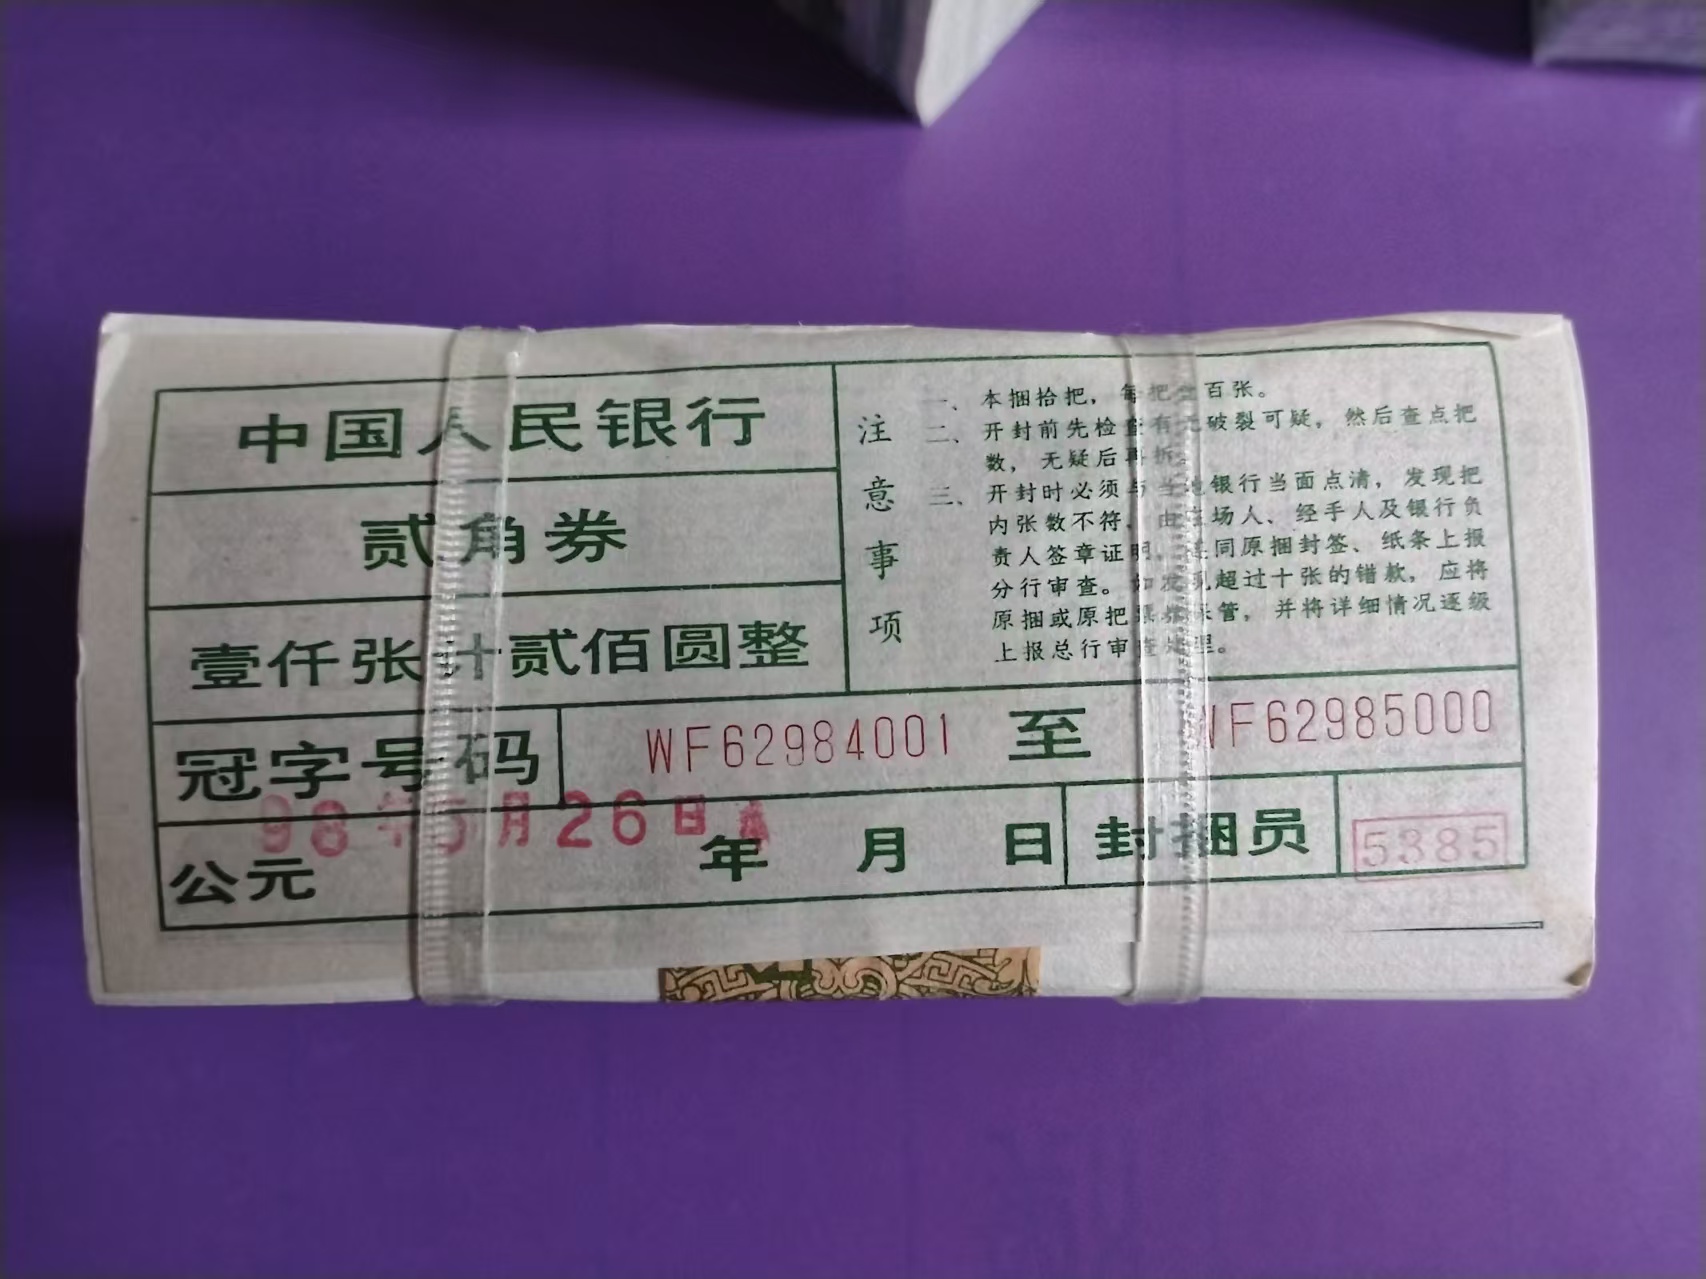 中国人民银行
贰角券
壹仟张计贰佰圆整
注意事项
一、本捆拾把，每把壹百张。
二、开封前先检查有无破裂可疑，然后查点把
数，无疑后再拆。
三、开封时必须与当地银行当面点清，发现把
内张数不符，由在场人、经手人及银行负
责人签章证明，连同原捆封签、纸条上报
分行审查。如发现超过十张的错款，应将
原捆或原把票券保管，并将详细情况逐级
上报总行审查处理。
冠字号码 WF62984001 至 WF62985000
98年5月26日
公元 年 月 日 封捆员 5385